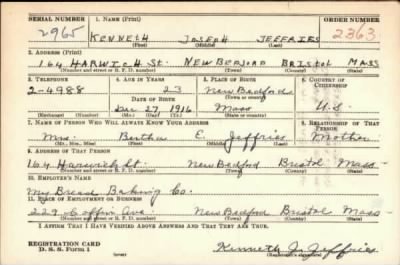 SERIAL NUMBER 1. NAME (Print) ORDER NUMBER
2965 KENNETH JOSEPH JEFFRIES 2363
(First) (Middle) (Last)
2. ADDRESS (Print)
164 HARWICH St. NEW BEDFORD BRISTOL MASS
(Number and street or R. F. D. number) (Town) (County) (State)
3. TELEPHONE 4. AGE IN YEARS 5. PLACE OF BIRTH 6. COUNTRY OF CITIZENSHIP
2-4988 23 New Bedford
DATE OF BIRTH
Dec 27 1916 Mass U.S.
7. NAME OF PERSON WHO WILL ALWAYS KNOW YOUR ADDRESS 8. RELATIONSHIP OF THAT PERSON
Mrs. Bertha E. Jeffries Mother
(Mr., Mrs., Miss) (First) (Middle) (Last)
9. ADDRESS OF THAT PERSON
164 Harwich St. New Bedford Bristol Mass
(Number and street or R. F. D. number) (Town) (County) (State)
10. EMPLOYER'S NAME
My Bread Baking Co.
11. PLACE OF EMPLOYMENT OR BUSINESS
229 Coffin Ave New Bedford Bristol Mass
(Number and street or R. F. D. number) (Town) (County) (State)
I AFFIRM THAT I HAVE VERIFIED ABOVE ANSWERS AND THAT THEY ARE TRUE.
REGISTRATION CARD
D. S. S. Form 1 Kenneth J. Jeffries
(Registrant's signature)